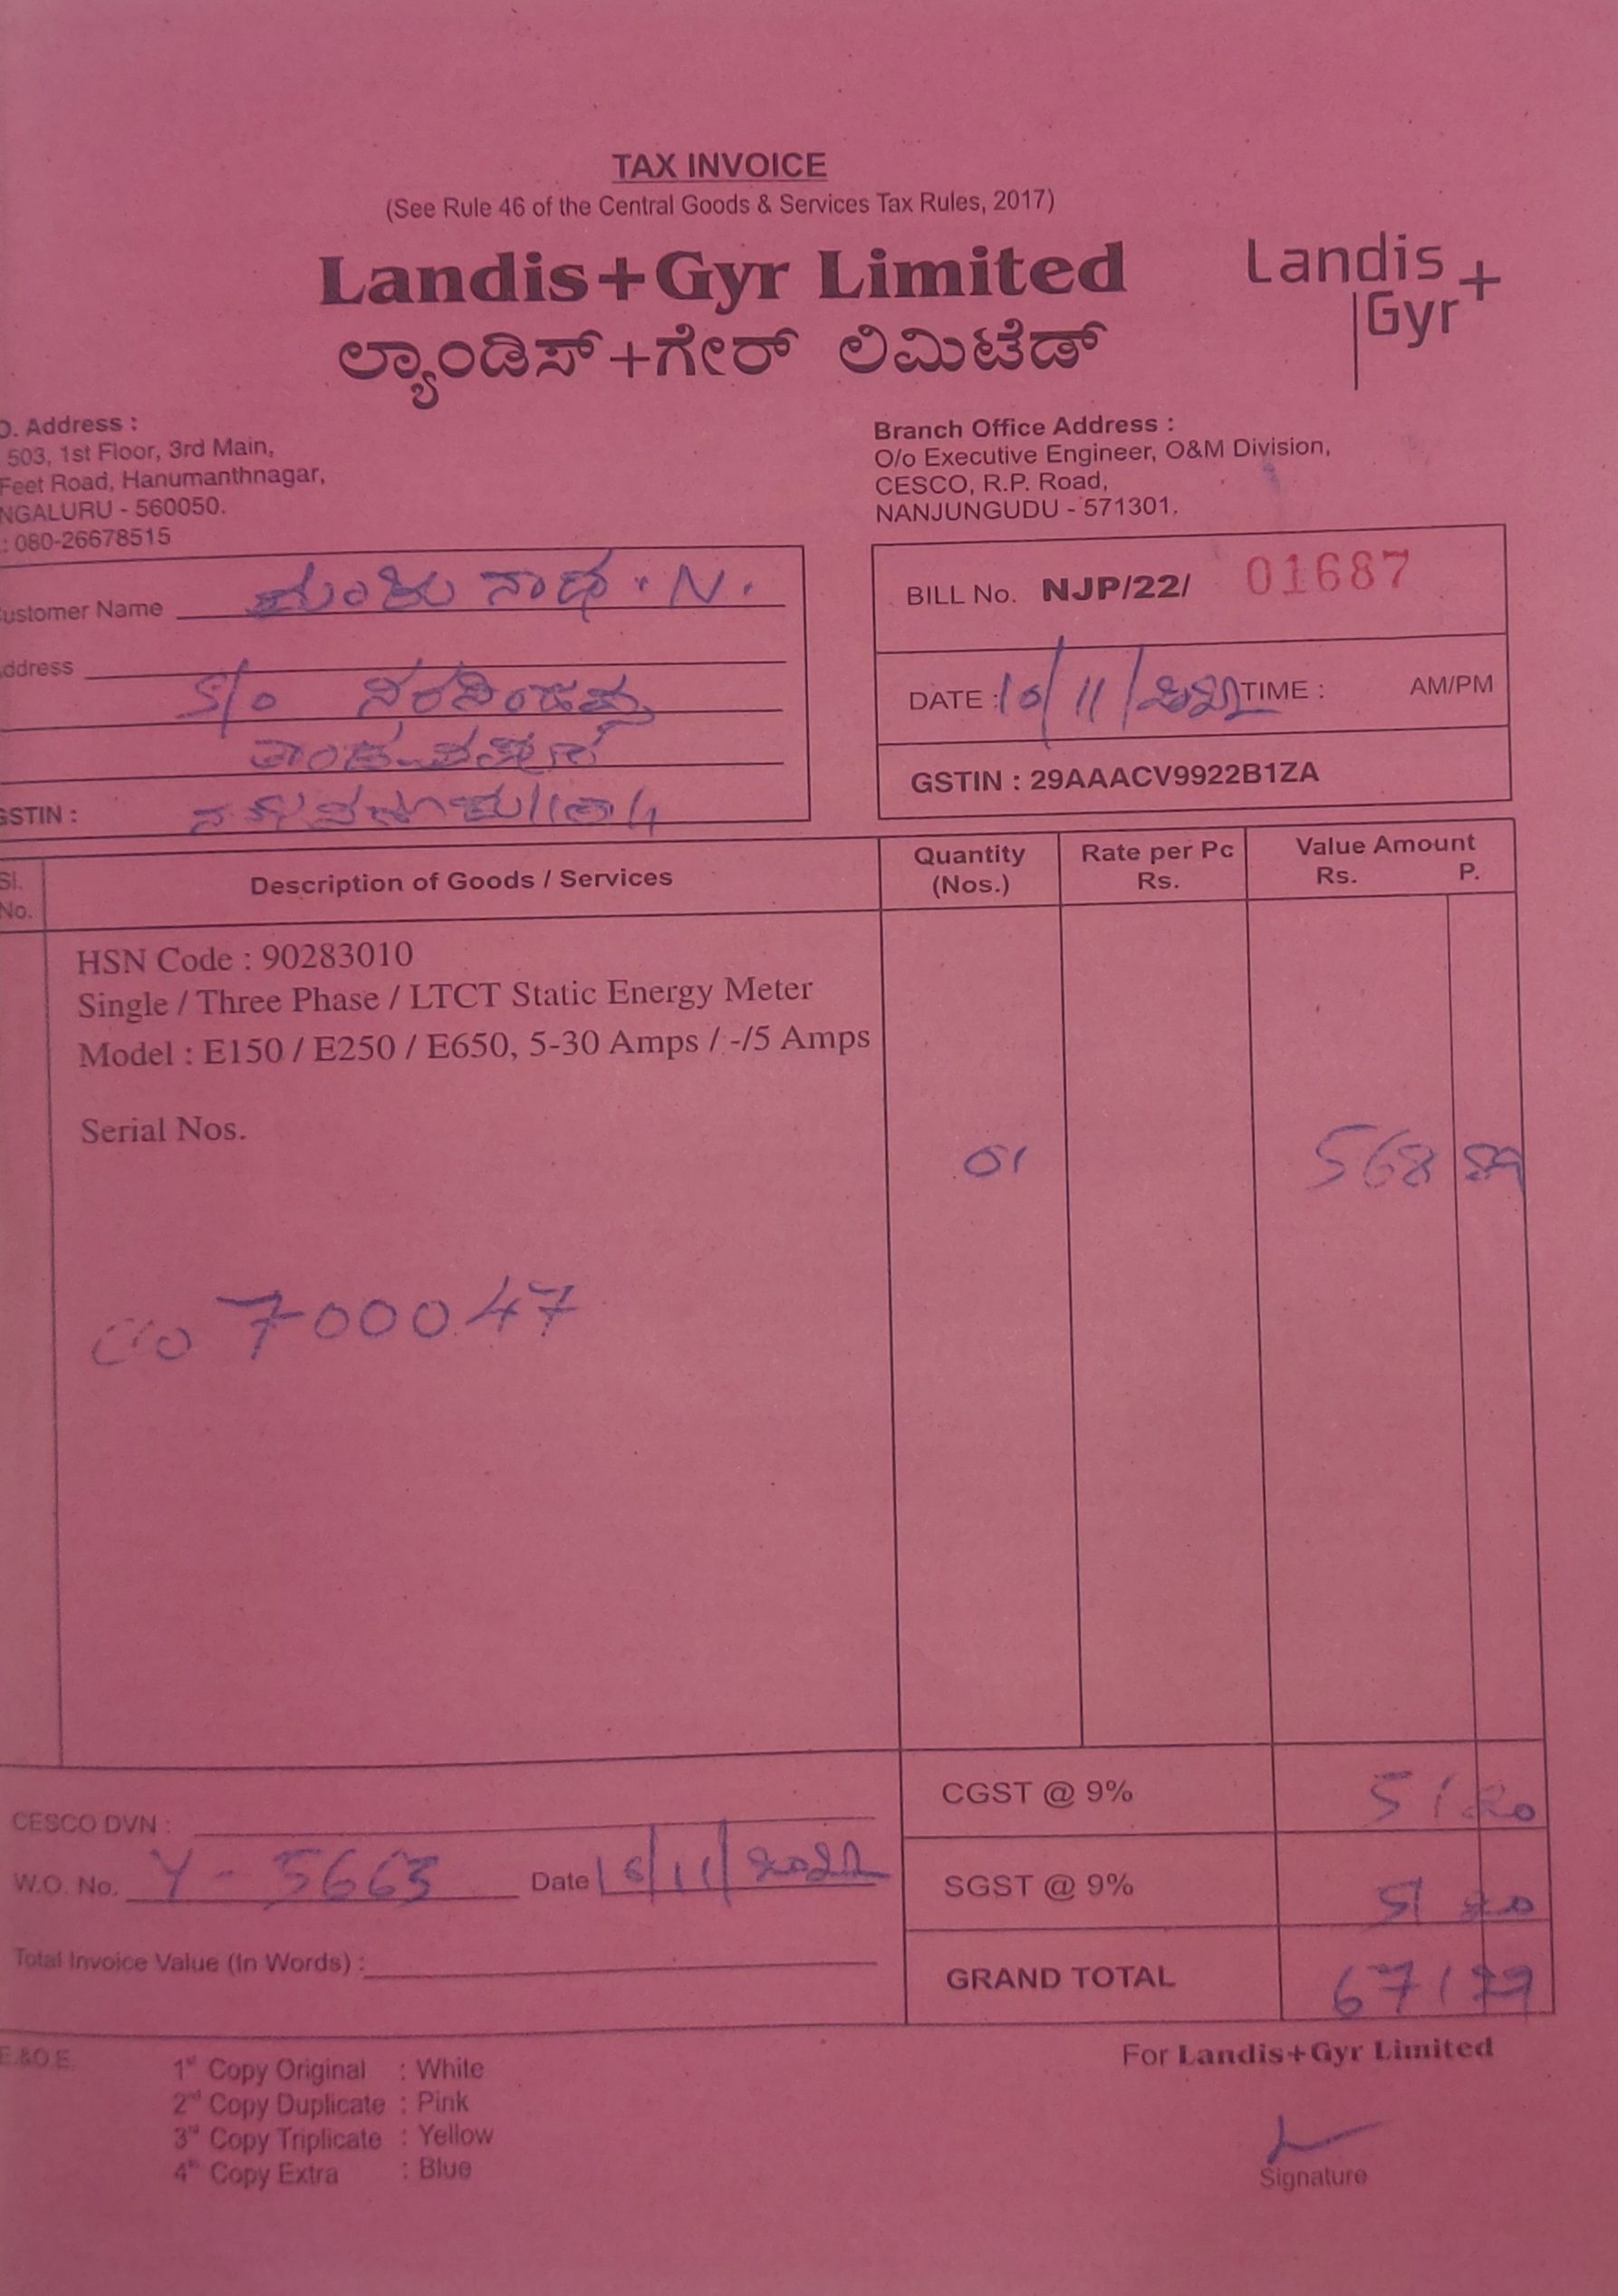 TAX INVOICE
(See Rule 46 of the Central Goods & Services Tax Rules, 2017)
Landis+Gyr Limited
ಲ್ಯಾಂಡಿಸ್+ಗೇರ್ ಲಿಮಿಟೆಡ್
Landis+
Gyr
O. Address :
503, 1st Floor, 3rd Main,
Feet Road, Hanumanthnagar,
NGALURU - 560050.
: 080-26678515
Branch Office Address :
O/o Executive Engineer, O&M Division,
CESCO, R.P. Road,
NANJUNGUDU - 571301.
ustomer Name ಮಂಜುನಾಥ . N.
ddress
S/o
GSTIN :
BILL No. NJP/22/ 01687
DATE : 10/11/2022 TIME : AM/PM
GSTIN : 29AAACV9922B1ZA
Sl. No. Description of Goods / Services Quantity (Nos.) Rate per Pc Rs. Value Amount Rs. P.
HSN Code : 90283010
Single / Three Phase / LTCT Static Energy Meter
Model : E150 / E250 / E650, 5-30 Amps / -/5 Amps
Serial Nos.
01 568 89
7000047
CGST @ 9% 51 20
CESCO DVN :
W.O. No. Y - 5663 Date /11/2022
SGST @ 9% 51 20
Total Invoice Value (In Words) :
GRAND TOTAL 671
E.&O.E.
For Landis+Gyr Limited
1st Copy Original : White
2nd Copy Duplicate : Pink
3rd Copy Triplicate : Yellow
4th Copy Extra : Blue
Signature